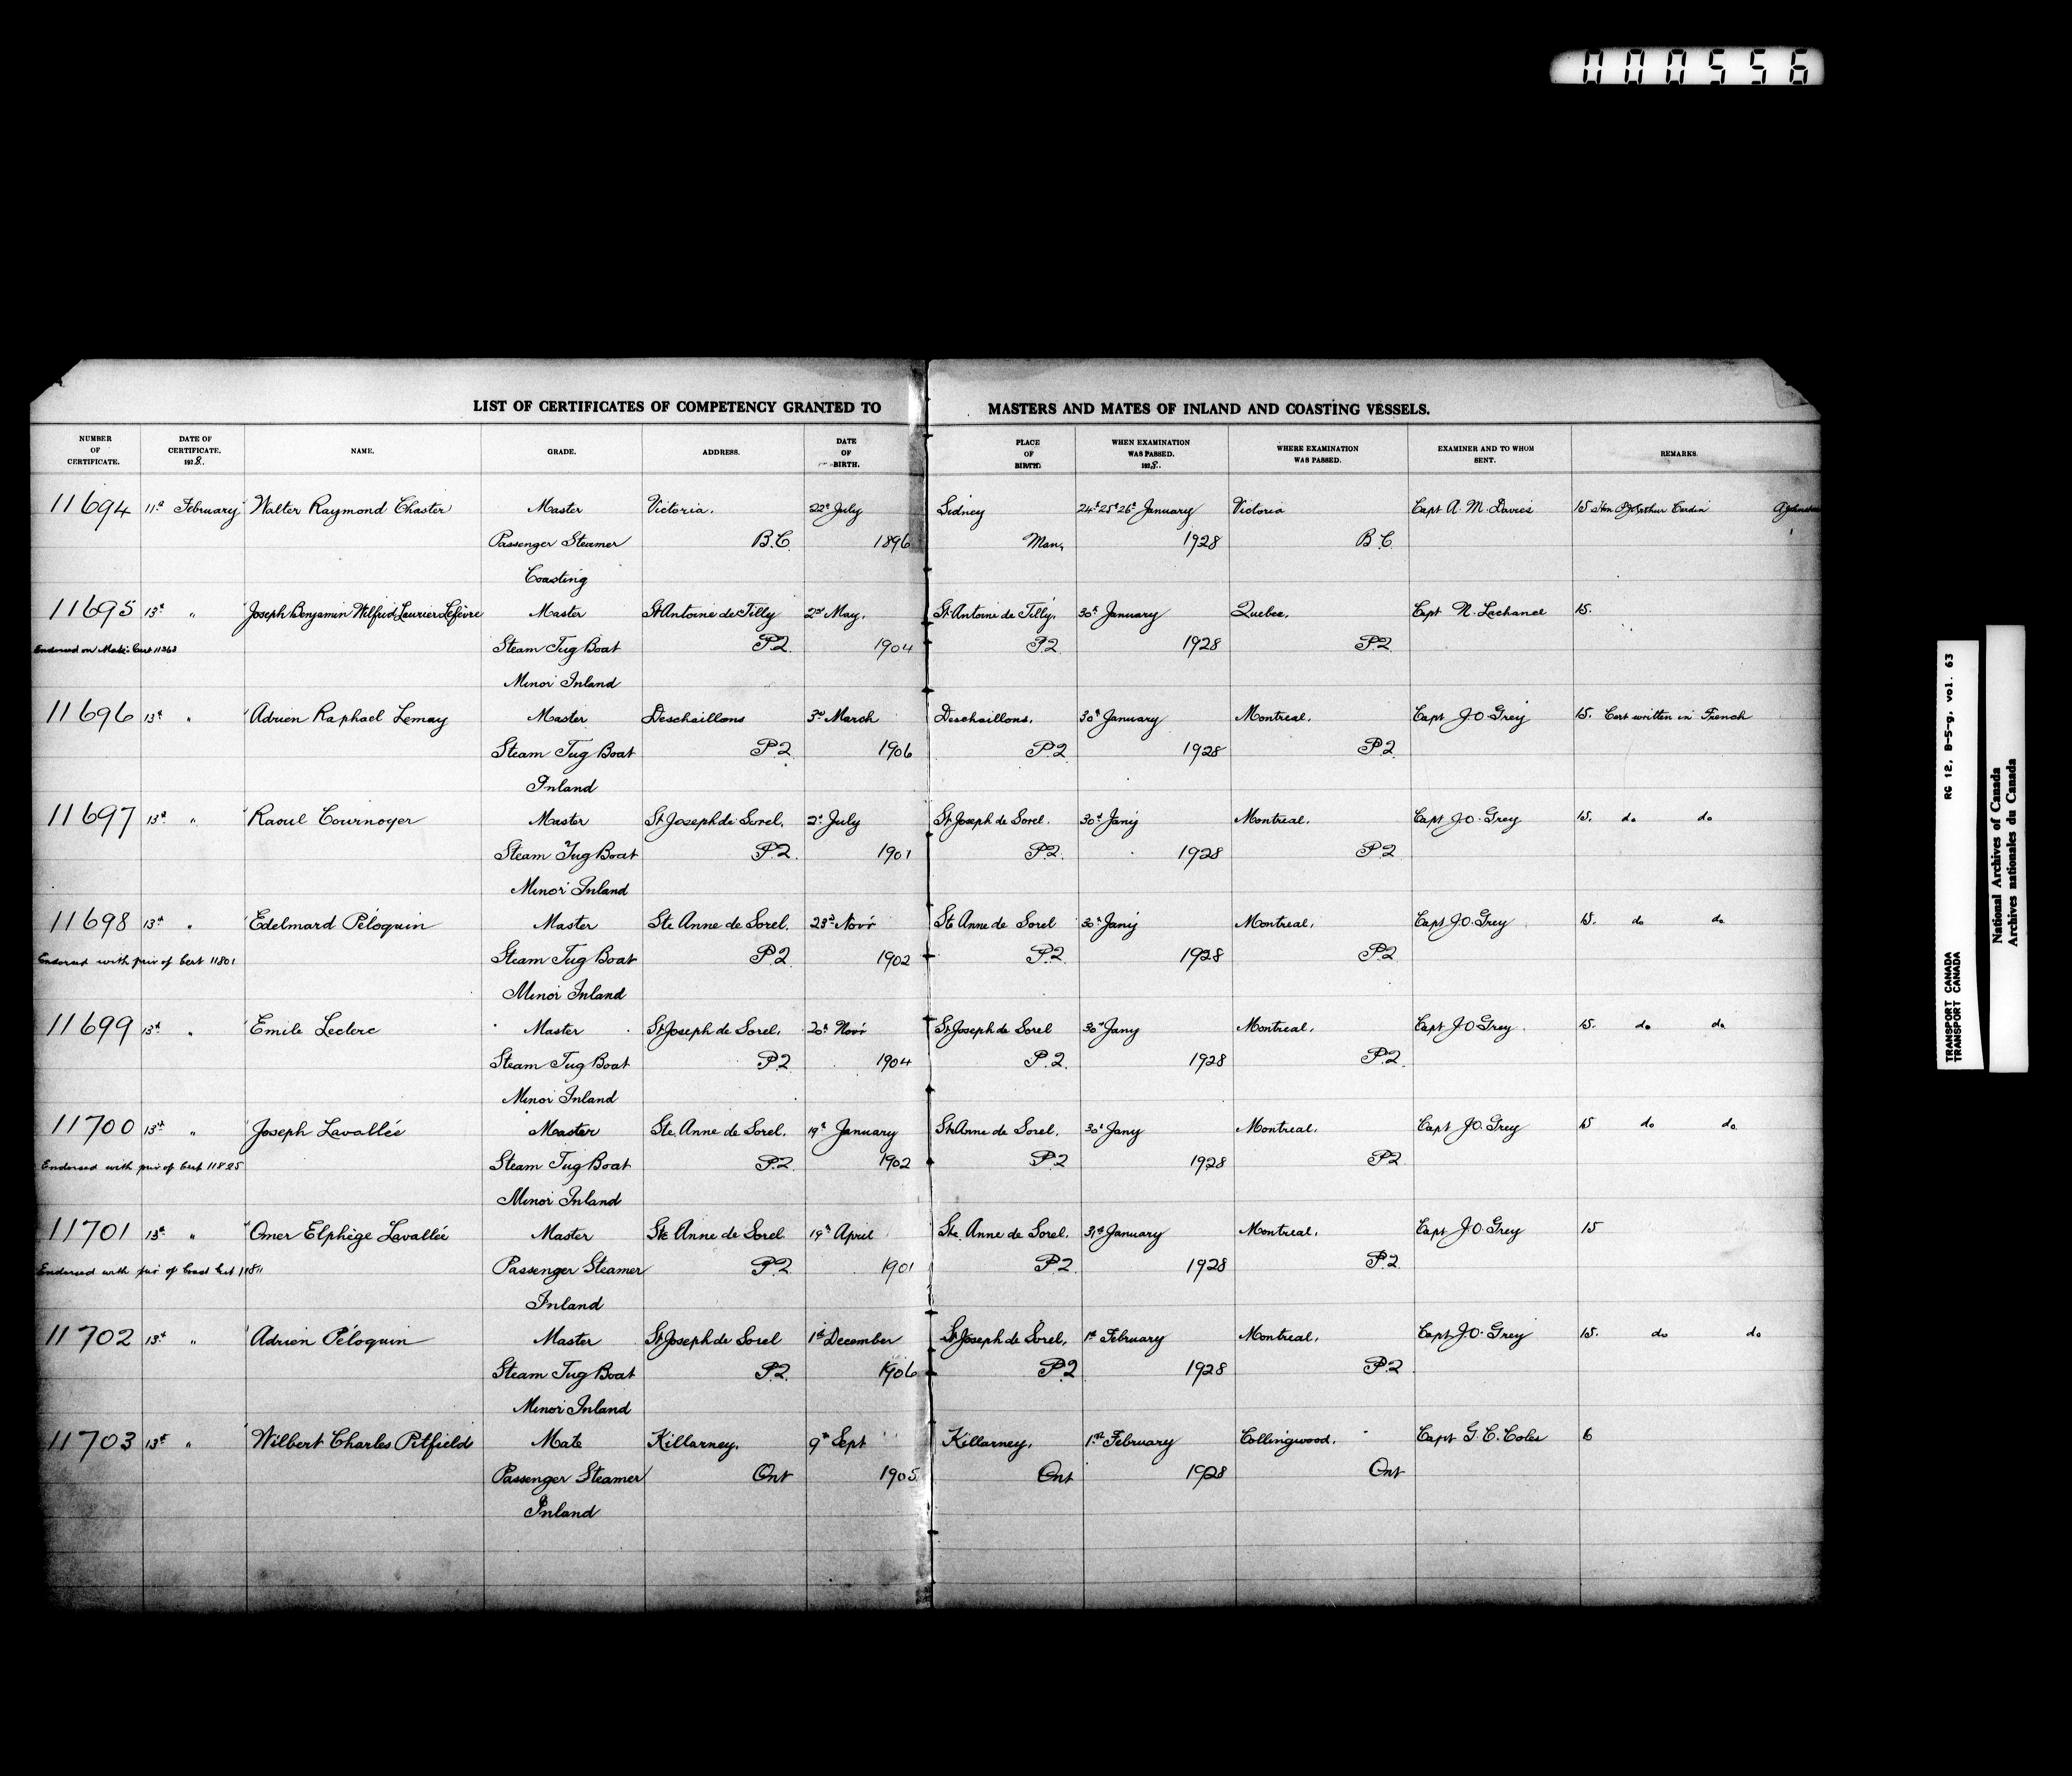 000556
LIST OF CERTIFICATES OF COMPETENCY GRANTED TO MASTERS AND MATES OF INLAND AND COASTING VESSELS.
NUMBER OF CERTIFICATE. DATE OF CERTIFICATE. 1928. NAME. GRADE. ADDRESS. DATE OF BIRTH. PLACE OF BIRTH. WHEN EXAMINATION WAS PASSED. 1928. WHERE EXAMINATION WAS PASSED. EXAMINER AND TO WHOM SENT. REMARKS.
11694 11th February Walter Raymond Chaster Master Victoria. 22nd July Sidney 24th 25th 26th January Victoria Capt A. M. Davies 15 Hon P. J. Arthur Cardin
Passenger Steamer B.C. 1896 Man, 1928 B.C.
Coasting
11695 13th " Joseph Benjamin Wilfrid Laurier Lefèvre Master St Antoine de Tilly 2nd May, St Antoine de Tilly, 30th January Quebec, Capt N. Lachance 15.
Endorsed on Mate's Cert 11363 Steam Tug Boat P.Q. 1904 P.Q. 1928 P.Q.
Minor Inland
11696 13th " Adrien Raphael Lemay Master Deschaillons 3rd March Deschaillons, 30th January Montreal, Capt J.O. Grey 15. Cert written in French
Steam Tug Boat P.Q. 1906 P.Q. 1928 P.Q.
Inland
11697 13th " Raoul Cournoyer Master St Joseph de Sorel, 2nd July St Joseph de Sorel. 30th Jany Montreal, Capt J.O. Grey 15. do do
Steam Tug Boat P.Q. 1901 P.Q. 1928 P.Q.
Minor Inland
11698 13th " Edelmard Péloquin Master Ste Anne de Sorel, 23rd Novr Ste Anne de Sorel 30th Jany Montreal, Capt J.O. Grey 15. do do
Endorsed with priv of Cert 11801 Steam Tug Boat P.Q. 1902 P.Q. 1928 P.Q.
Minor Inland
11699 13th " Emile Leclerc Master St Joseph de Sorel, 20th Novr St Joseph de Sorel 30th Jany Montreal, Capt J.O. Grey. 15. do do
Steam Tug Boat P.Q. 1904 P.Q. 1928 P.Q.
Minor Inland
11700 13th " Joseph Lavallée Master Ste Anne de Sorel. 19th January Ste Anne de Sorel, 30th Jany Montreal, Capt J.O. Grey 15 do do
Endorsed with priv of Cert 11825 Steam Tug Boat P.Q. 1902 P.Q. 1928 P.Q.
Minor Inland
11701 13th " Omer Elphège Lavallée Master Ste Anne de Sorel 19th April Ste. Anne de Sorel, 31st January Montreal, Capt J.O. Grey 15
Endorsed with priv of Cert Passenger Steamer P.Q. 1901 P.Q. 1928 P.Q.
Inland
11702 13th " Adrien Péloquin Master St Joseph de Sorel 1st December St Joseph de Sorel, 1st February Montreal, Capt J.O. Grey 15. do do
Steam Tug Boat P.Q. 1906 P.Q. 1928 P.Q.
Minor Inland
11703 13th " Wilbert Charles Pitfield Mate Killarney, 9th Sept Killarney, 1st February Collingwood, Capt G. C. Coles 6
Passenger Steamer Ont 1905 Ont 1928 Ont
Inland
RG 12, B-5-g, vol. 63
TRANSPORT CANADA
TRANSPORT CANADA
National Archives of Canada
Archives nationales du Canada